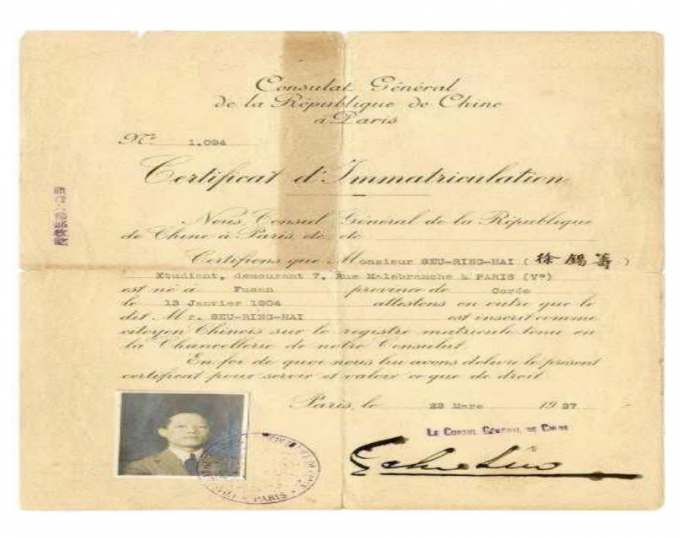 Consulat Général
de la République de Chine
à Paris
No 1.094
Certificat d'Immatriculation
Nous Consul Général de la République
de Chine à Paris, de
Certifions que Monsieur SEU-RING-HAI (徐錫籌)
Etudiant, demeurant 7, Rue Malebranche à PARIS (V°)
est né à Fusan province de Corée
le 13 Janvier 1904 attestons en outre que le
dit Mr. SEU-RING-HAI est inscrit comme
citoyen Chinois sur le registre matricule tenu en
la Chancellerie de notre Consulat
En foi de quoi nous lui avons délivré le présent
certificat pour servir et valoir ce que de droit
Paris, le 23 Mars 1937
LE CONSUL GÉNÉRAL DE CHINE
PARIS